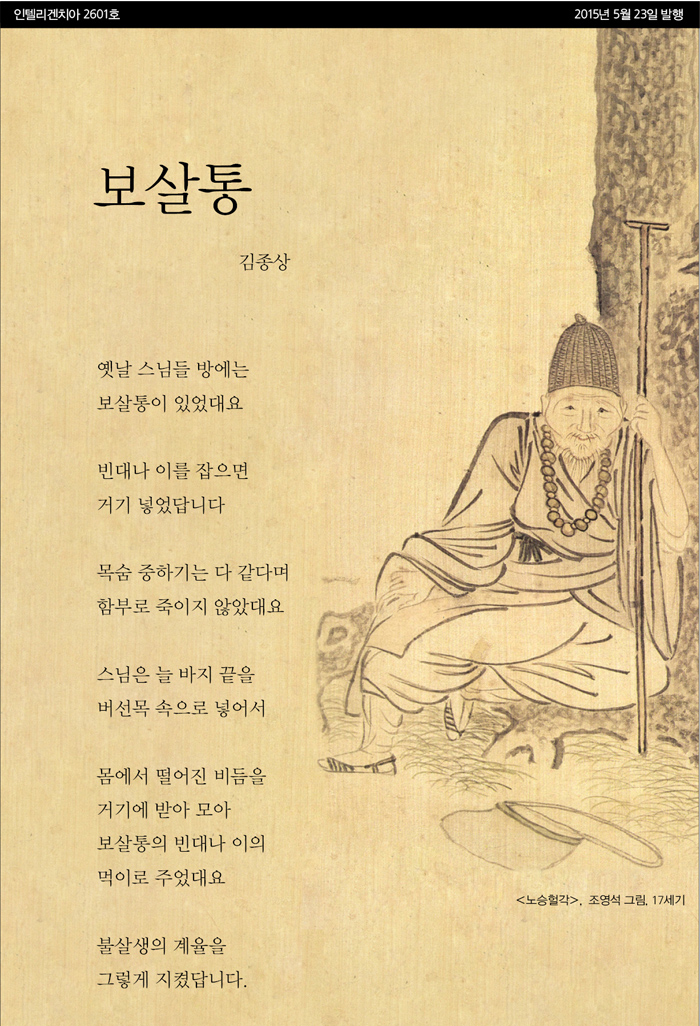 인텔리겐치아 2601호
2015년 5월 23일 발행
보살통
김종상
옛날 스님들 방에는
보살통이 있었대요
빈대나 이를 잡으면
거기 넣었답니다
목숨 중하기는 다 같다며
함부로 죽이지 않았대요
스님은 늘 바지 끝을
버선목 속으로 넣어서
몸에서 떨어진 비듬을
거기에 받아 모아
보살통의 빈대나 이의
먹이로 주었대요
불살생의 계율을
그렇게 지켰답니다.
<노승헐각>, 조영석 그림, 17세기